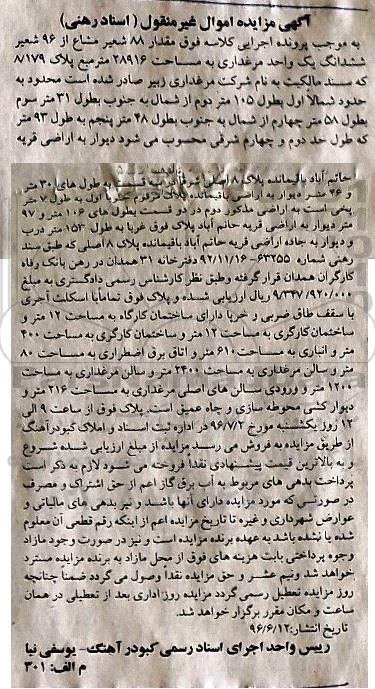 آگهی مزایده اموال غیرمنقول ( اسناد رهنی )
به موجب پرونده اجرایی کلاسه فوق مقدار ۸۸ شعیر مشاع از ۹۶ شعیر
ششدانگ یک واحد مرغداری به مساحت ۲۸۹۱۶ مترمربع پلاک ۸/۱۷۹
که سند مالکیت به نام شرکت مرغداری زبیر صادر شده است محدود به
حدود شمالاً اول بطول ۱۰۵ متر دوم از شمال به جنوب بطول ۳۱ متر سوم
بطول ۵۸ متر چهارم از شمال به جنوب بطول ۴۸ متر پنجم به طول ۹۳ متر
که طول حد دوم و چهارم شرقی محسوب می شود دیوار به اراضی قریه
حاتم آباد باقیمانده پلاک ۸ اصلی شرقا در سه قسمت به طول های ۳۰ متر
و ۴۶ متر دیوار به اراضی باقیمانده پلاک مرقوم جنوبا اول به طول ۷ متر
پخی است به اراضی مذکور دوم در دو قسمت بطول های ۱۰۶ متر و ۹۷
متر دیوار به اراضی قریه حاتم آباد پلاک فوق غربا به طول ۱۵۳ متر درب
و دیوار به جاده اراضی قریه حاتم آباد باقیمانده پلاک ۸ اصلی که طبق سند
رهنی شماره ۶۳۲۵۵- ۹۲/۱۱/۱۶ دفترخانه ۳۱ همدان در رهن بانک رفاه
کارگران همدان قرار گرفته وطبق نظر کارشناس رسمی دادگستری به مبلغ
۹/۳۴۷/۹۲۰/۰۰۰ ریال ارزیابی شده و پلاک فوق تماماً با اسکلت آجری
با سقف طاق ضربی و خرپا دارای ساختمان کارگاه به مساحت ۱۲ متر و
ساختمان کارگری به مساحت ۱۲ متر و ساختمان کارگری به مساحت ۴۰۰
متر و انباری به مساحت ۶۱۰ متر و اتاق برق اضطراری به مساحت ۸۰
متر و سالن مرغداری به مساحت ۲۴۰۰ متر و سالن مرغداری به مساحت
۱۲۰۰ متر و ورودی سالن های اصلی مرغداری به مساحت ۲۱۶ متر و
دیوار کشی محوطه سازی و چاه عمیق است. پلاک فوق از ساعت ۹ الی
۱۲ روز یکشنبه مورخ ۹۶/۷/۲ در اداره ثبت اسناد و املاک کبودرآهنگ
از طریق مزایده به فروش می رسد مزایده از مبلغ ارزیابی شده شروع
و به بالاترین قیمت پیشنهادی نقداً فروخته می شود لازم به ذکر است
پرداخت بدهی های مربوط به آب برق گاز اعم از حق اشتراک و مصرف
در صورتی که مورد مزایده دارای آنها باشد و نیز بدهی های مالیاتی و
عوارض شهرداری و غیره تا تاریخ مزایده اعم از اینکه رقم قطعی آن معلوم
شده یا نشده باشد به عهده برنده مزایده است و نیز در صورت وجود مازاد
وجوه پرداختی بابت هزینه های فوق از محل مازاد به برنده مزایده مسترد
خواهد شد ونیم عشر و حق مزایده نقداً وصول می گردد ضمناً چنانچه
روز مزایده تعطیل رسمی گردد مزایده روز اداری بعد از تعطیلی در همان
ساعت و مکان مقرر برگزار خواهد شد.
تاریخ انتشار: ۹۶/۶/۱۲
رییس واحد اجرای اسناد رسمی کبودر آهنگ- یوسفی نیا
م الف: ۳۰۱